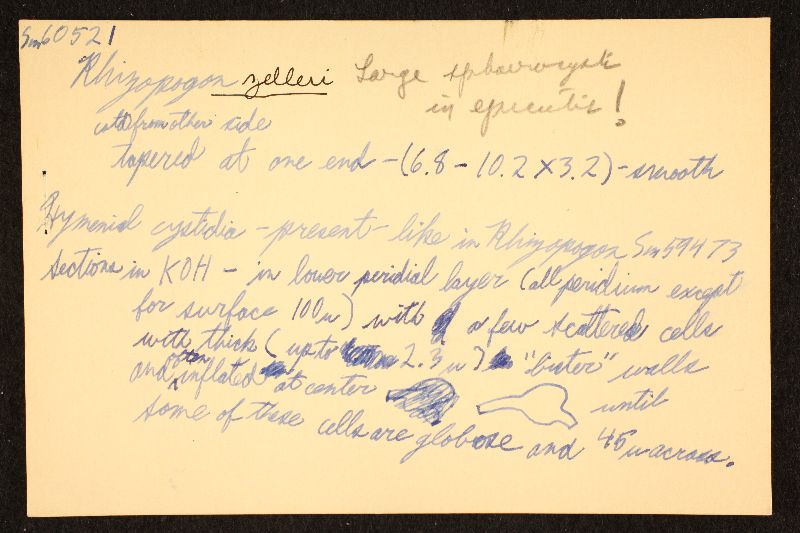 Sm 60521
Rhizopogon zelleri Large sphaerocysts
in epicutis!
cot'd from other side
tapered at one end - (6.8 - 10.2 X 3.2) - smooth
Hymenial cystidia - present - like in Rhizopogon Sm 59473
Sections in KOH - in lower peridial layer (all peridium except
for surface 100u) with a few scattered cells
with thick (up to 2.3 u) "outer" walls
and often inflated at center until
some of these cells are globose and 45 u across.